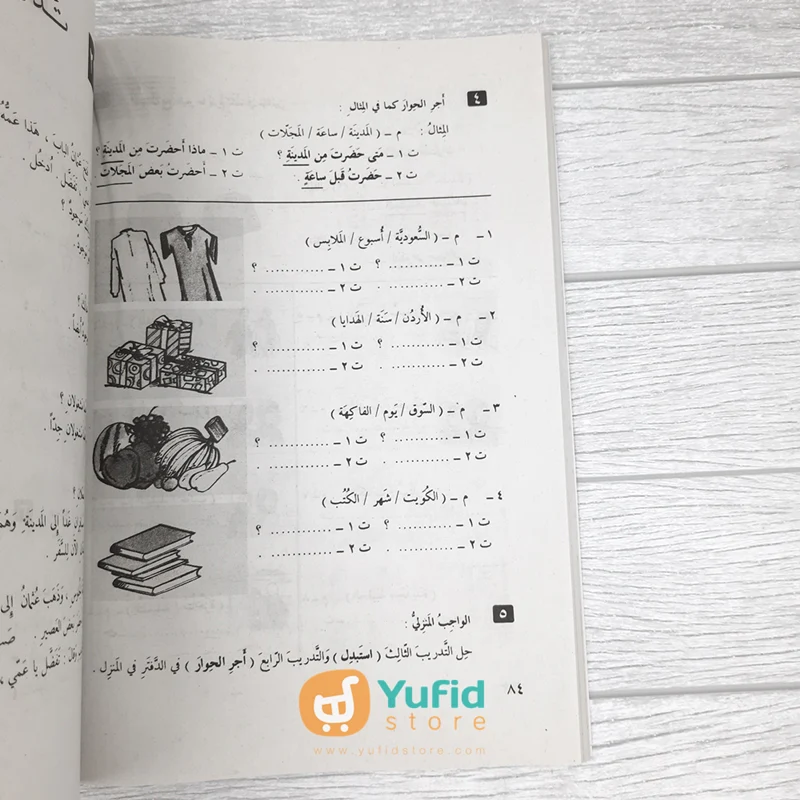 ٤ أَجرِ الحِوارَ كما في المِثالِ :
المِثالُ : م - ( المَدينَة / ساعَة / المَجَلّات )
ت ١ - مَتى حَضَرتَ مِن المَدينَةِ ؟ ت ١ - ماذا أَحضَرتَ مِن المَدينَةِ ؟
ت ٢ - حَضَرتُ قَبلَ ساعَةٍ . ت ٢ - أَحضَرتُ بَعضَ المَجَلّات .
١ - م - ( السُّعودِيَّة / أُسبوع / المَلابِس )
ت ١ - ............ ؟ ت ١ - ............ ؟
ت ٢ - ............ . ت ٢ - ............ .
٢ - م - ( الأُردُن / سَنَة / الهَدايا )
ت ١ - ............ ؟ ت ١ - ............ ؟
ت ٢ - ............ . ت ٢ - ............ .
٣ - م - ( السّوق / يَوم / الفاكِهَة )
ت ١ - ............ ؟ ت ١ - ............ ؟
ت ٢ - ............ . ت ٢ - ............ .
٤ - م - ( الكُوَيت / شَهر / الكُتُب )
ت ١ - ............ ؟ ت ١ - ............ ؟
ت ٢ - ............ . ت ٢ - ............ .
٥ الواجِبُ المَنزِلِيُّ :
حِل التَّدريبَ الثّالِثَ ( استَبدِل ) وَالتَّدريبَ الرّابِعَ ( أَجرِ الحِوارَ ) في الدَّفتَرِ في المَنزِلِ .
٨٤
Yufid
store
www.yufidstore.com